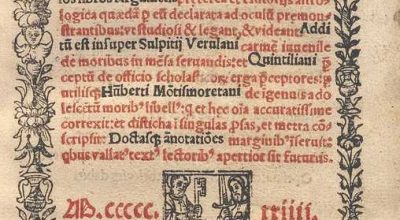 logica quædã p eũ declarata ad oculũ premon
strantibus: vt studiosi & legant, & videant. Addi
tũ est insuper Sulpitij Verulani carmẽ iuuenile
de moribus in mẽsa seruandis: et Quintiliani p
ceptũ de officio scholasticorũ erga pceptores: p
utilisq; Hũberti Mõtismoretani de igenuis ad
lescẽtũ morib' libell': q et hec oĩa accuratissime
correxit: et disticha ĩ singulas psas, et metra cõ
scripsit: Doctasq; anotatiões marginib' ĩseruit:
qbus vallat' text' lectorib' apertiot sit futurus.
M. CCCCC. xiiii.